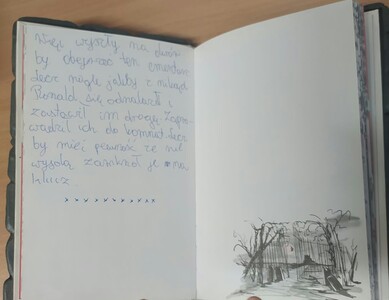 Więc wyszły na dwór
by obejrzeć ten cmentarz
lecz nagle jakby z nikąd
Ronald się odnalazł i
zastawił im drogę. Zapro
wadził ich do komnat. Lecz
by mieć pewność że nie
wyjdą zamknął je na
klucz.
x x x x x x x x x x